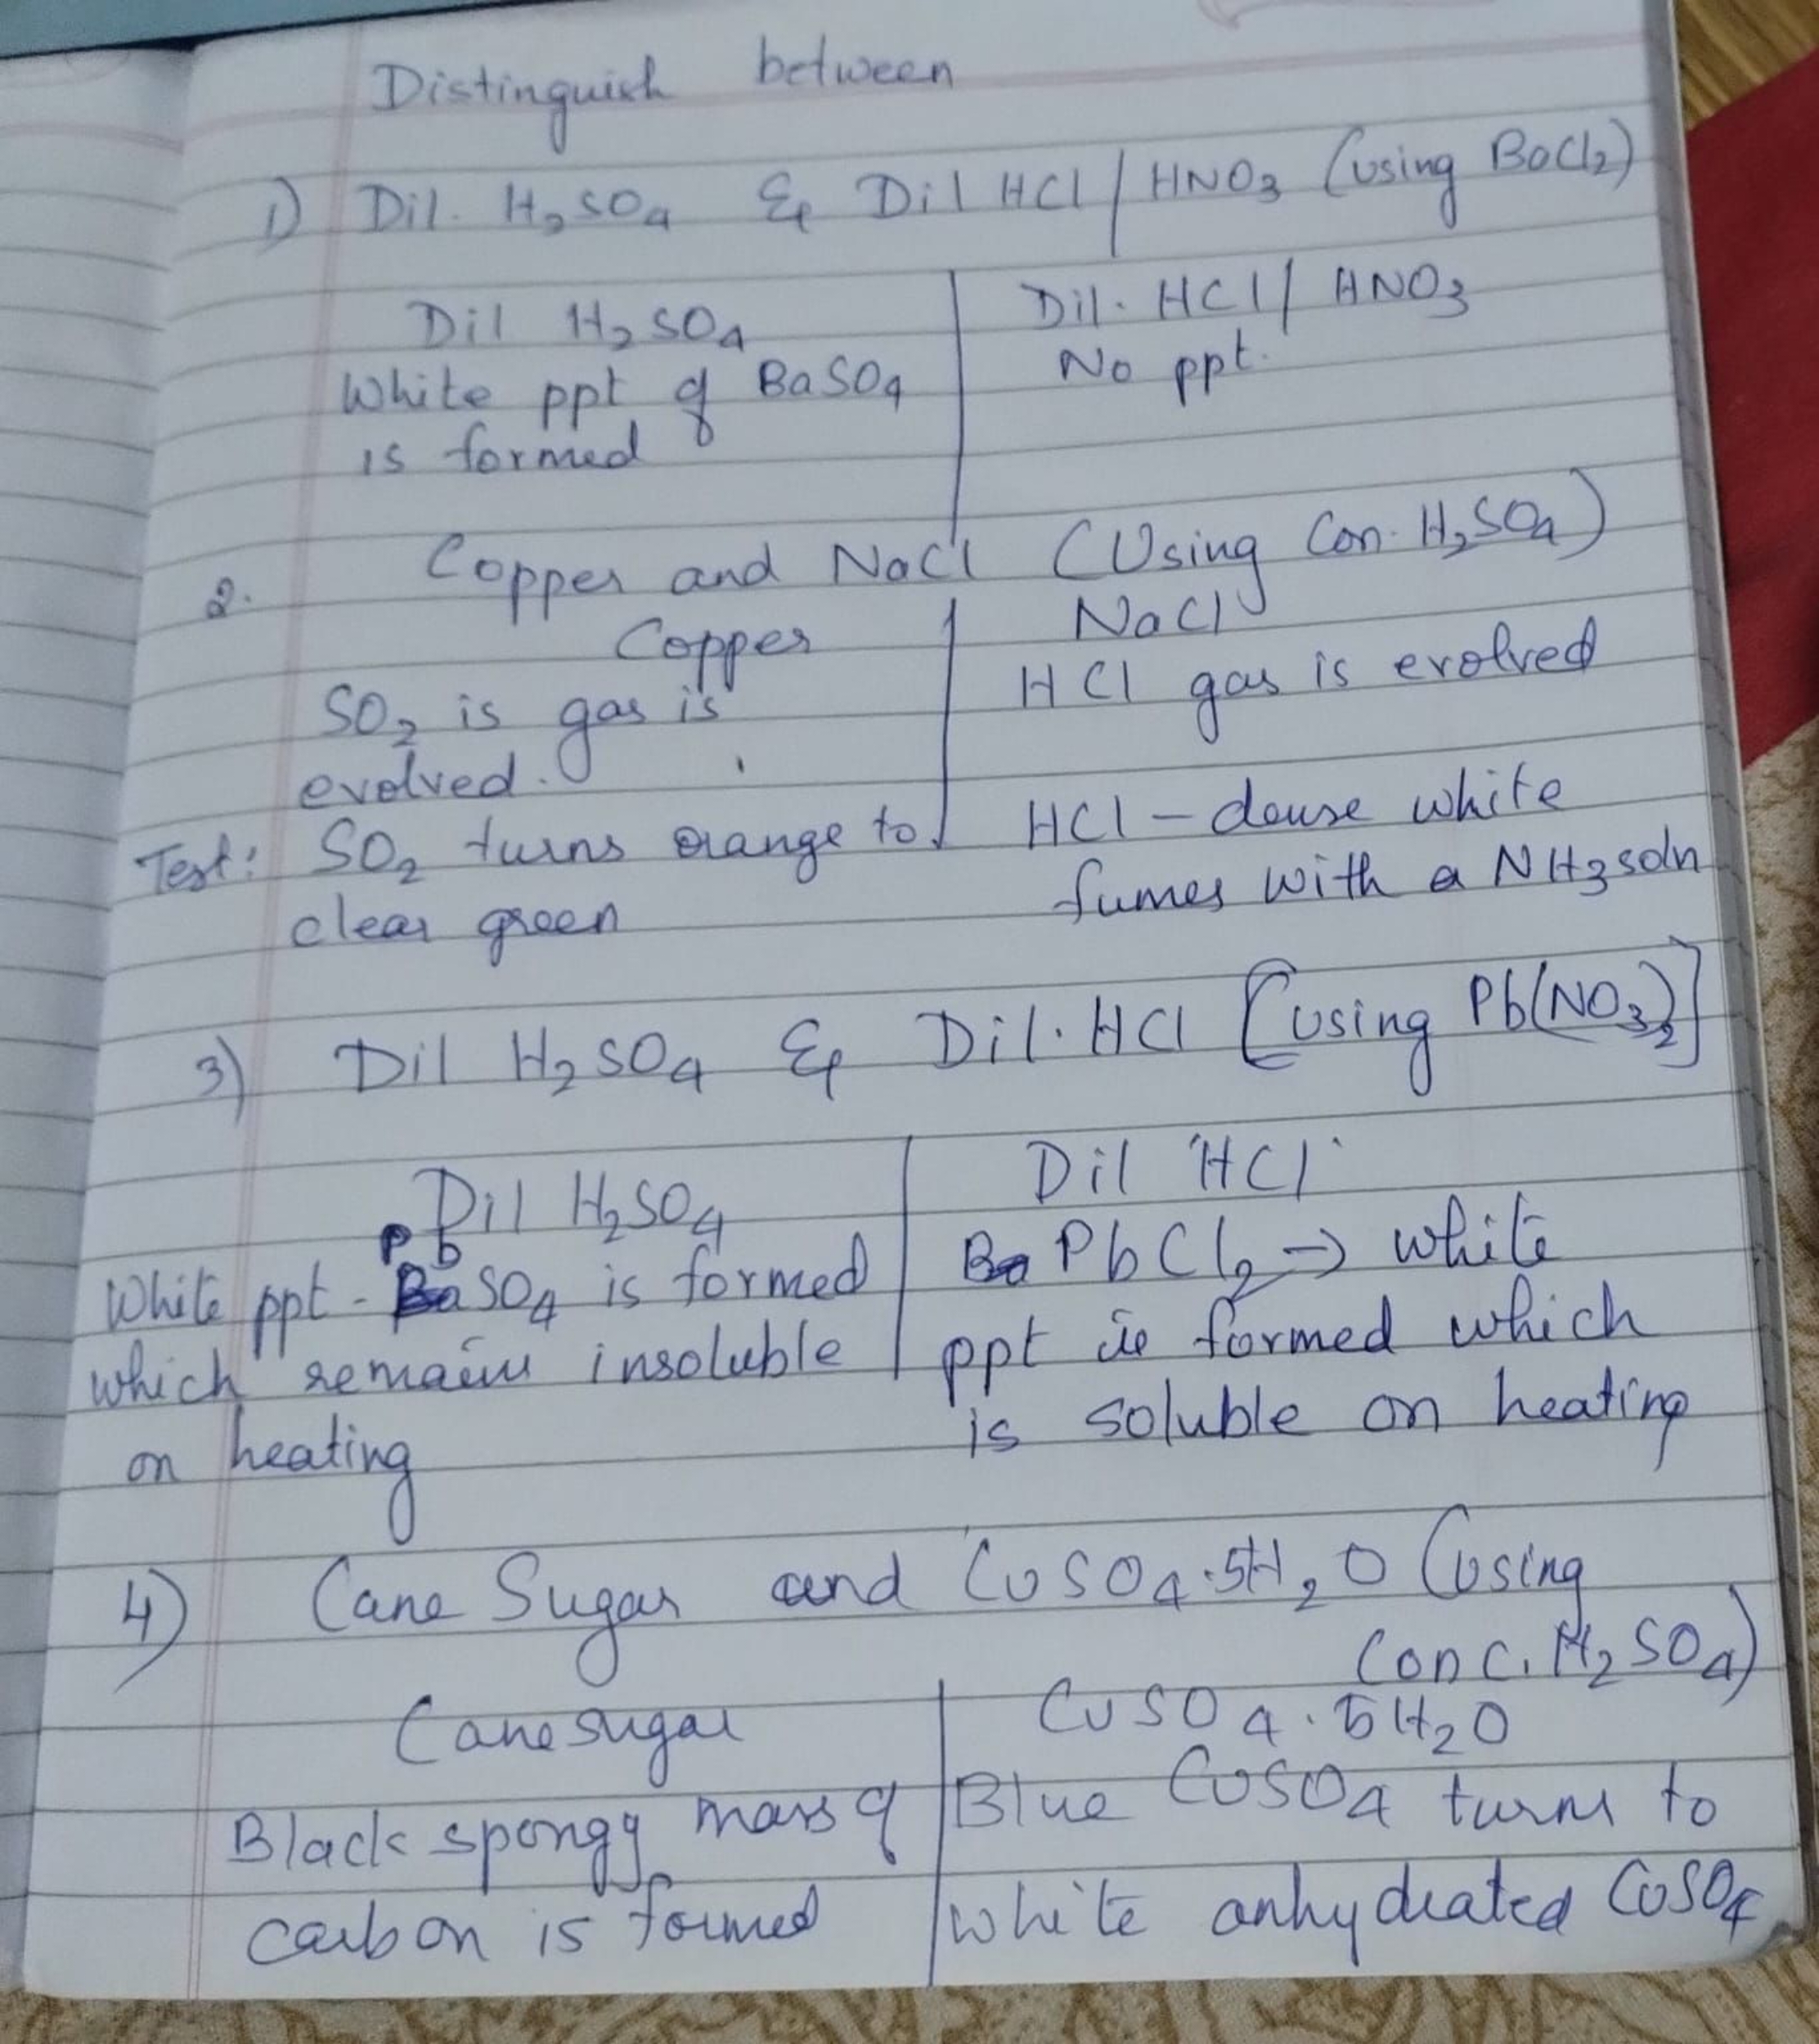 Distinguish between
1) Dil. H₂SO₄ & Dil HCl / HNO₃ (using BaCl₂)
Dil H₂SO₄
White ppt of BaSO₄
is formed
Dil. HCl / HNO₃
No ppt.
2. Copper and NaCl (Using Con. H₂SO₄)
Copper
SO₂ is gas is
evolved.
Test: SO₂ turns orange to
clear green
NaCl
HCl gas is evolved
HCl – dense white
fumes with a NH₃ soln
3) Dil H₂SO₄ & Dil. HCl [using Pb(NO₃)₂]
Dil H₂SO₄
White ppt - PbSO₄ is formed
which remains insoluble
on heating
Dil HCl
PbCl₂ → white
ppt is formed which
is soluble on heating
4) Cane Sugar and CuSO₄.5H₂O (using
conc. H₂SO₄)
Cane sugar
Black spongy mass of
carbon is formed
CuSO₄.5H₂O
Blue CuSO₄ turns to
white anhydrated CuSO₄